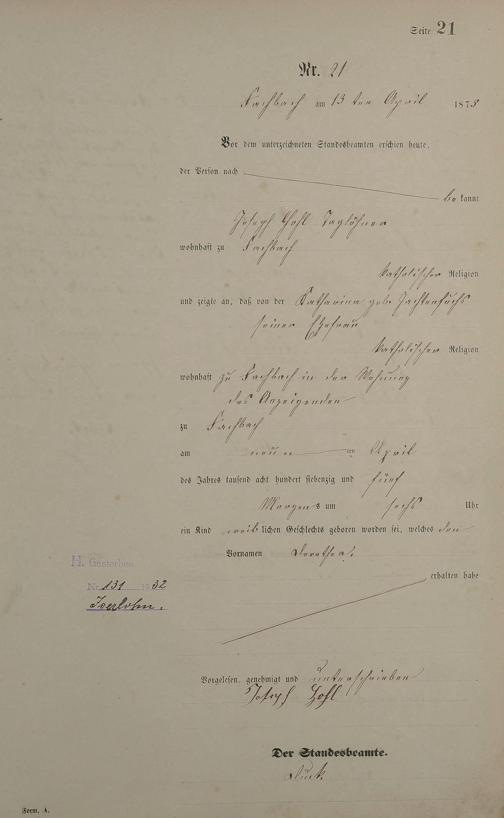 Seite 21
Nr. 21
Fachbach am 13 ten April 1875
Vor dem unterzeichneten Standesbeamten erschien heute,
der Person nach
be kannt
Joseph Hohl Taglöhner
wohnhaft zu Fachbach
katholischer Religion
und zeigte an, daß von der Katharina geb.
seiner Ehefrau
katholischer Religion
wohnhaft zu Fachbach in der Wohnung
des Anzeigenden
zu Fachbach
am neun ten April
des Jahres tausend acht hundert siebenzig und fünf
Morgens um sechs Uhr
ein Kind weib lichen Geschlechts geboren worden sei, welches den
Vornamen Dorothea
erhalten habe
H. Gestorben
Nr. 131 1932
Iserlohn.
Vorgelesen, genehmigt und unterschrieben
Joseph Hohl
Der Standesbeamte.
Form. A.